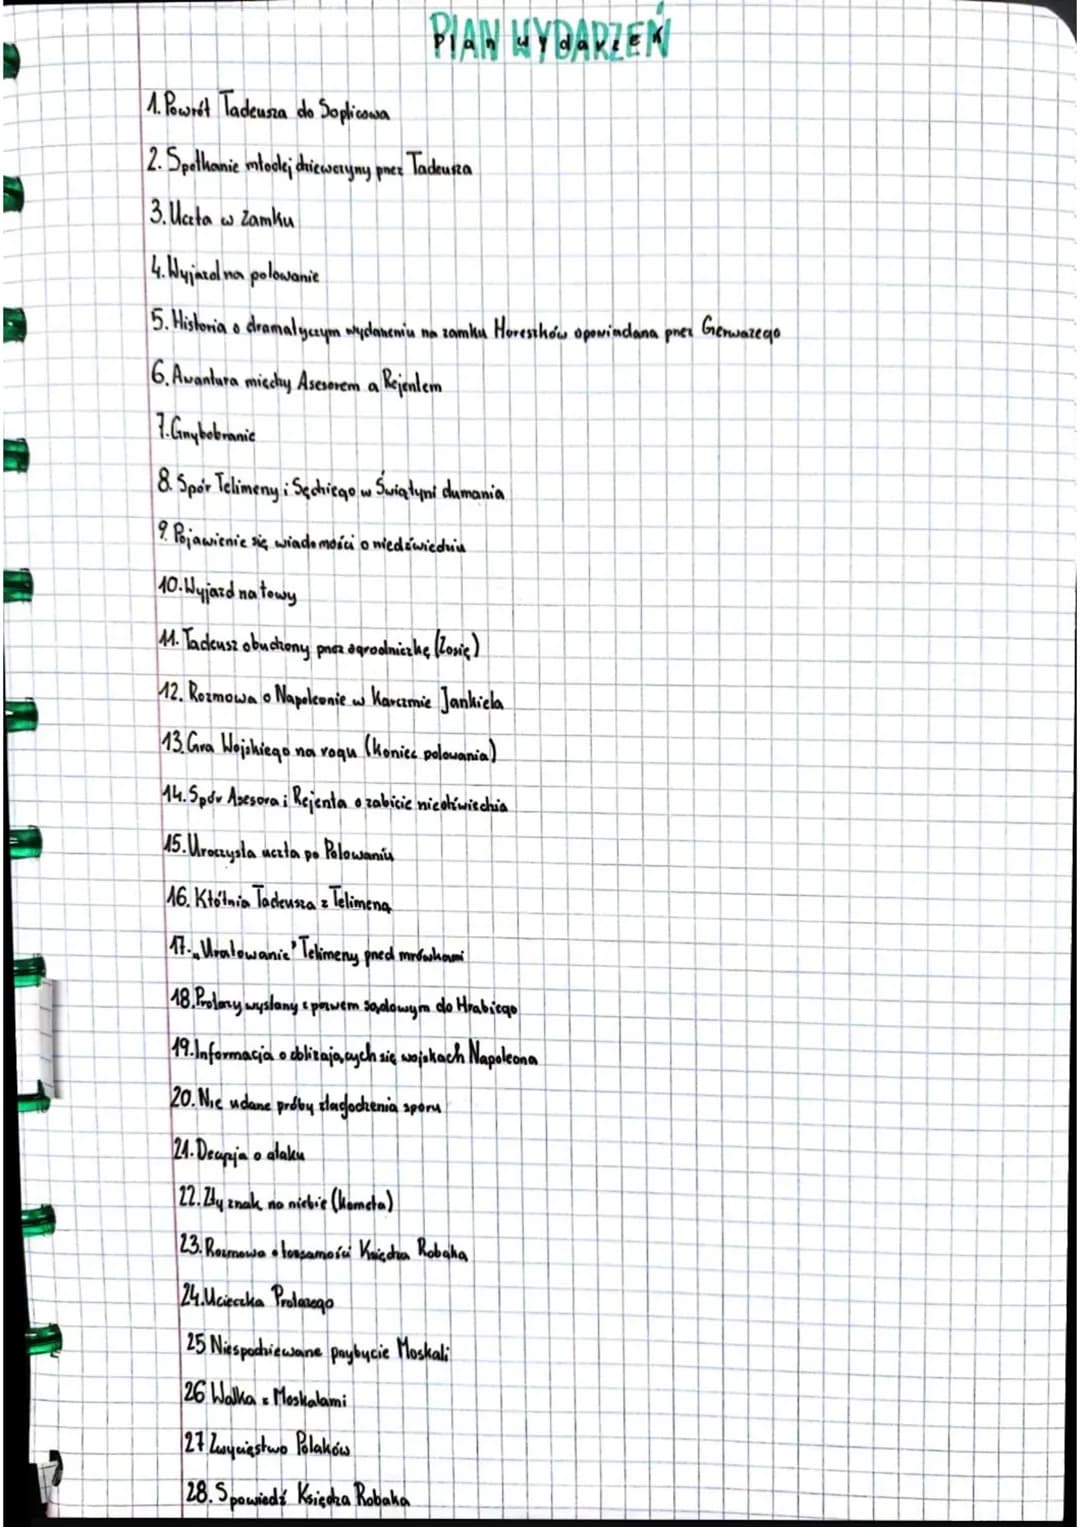 PlAN WYDARZEŃ
Plan wydarzeń
1. Powrót Tadeusza do Soplicowa
2. Spotkanie młodej dziewczyny przez Tadeusza
3. Uczta w Zamku
4. Wyjazd na polowanie
5. Historia o dramatycznym wydarzeniu na zamku Horeszków opowiadana przez Gerwazego
6. Awantura między Asesorem a Rejentem
7. Grzybobranie
8. Spór Telimeny i Sędziego w Świątyni dumania
9. Pojawienie się wiadomości o niedźwiedziu
10. Wyjazd na łowy
11. Tadeusz obudzony przez ogrodniczkę (Zosię)
12. Rozmowa o Napoleonie w Karczmie Jankiela
13. Gra Wojskiego na rogu (koniec polowania)
14. Spór Asesora i Rejenta o zabicie niedźwiedzia
15. Uroczysta uczta po Polowaniu
16. Kłótnia Tadeusza z Telimeną
17. „Uratowanie" Telimeny przed mrówkami
18. Protazy wysłany z pozwem sądowym do Hrabiego
19. Informacja o zbliżających się wojskach Napoleona
20. Nie udane próby złagodzenia sporu
21. Decyzja o ataku
22. Zły znak na niebie (kometa)
23. Rozmowa o tożsamości Księdza Robaka
24. Ucieczka Protazego
25 Niespodziewane przybycie Moskali
26 Walka z Moskalami
27 Zwycięstwo Polaków
28. Spowiedź Księdza Robaka